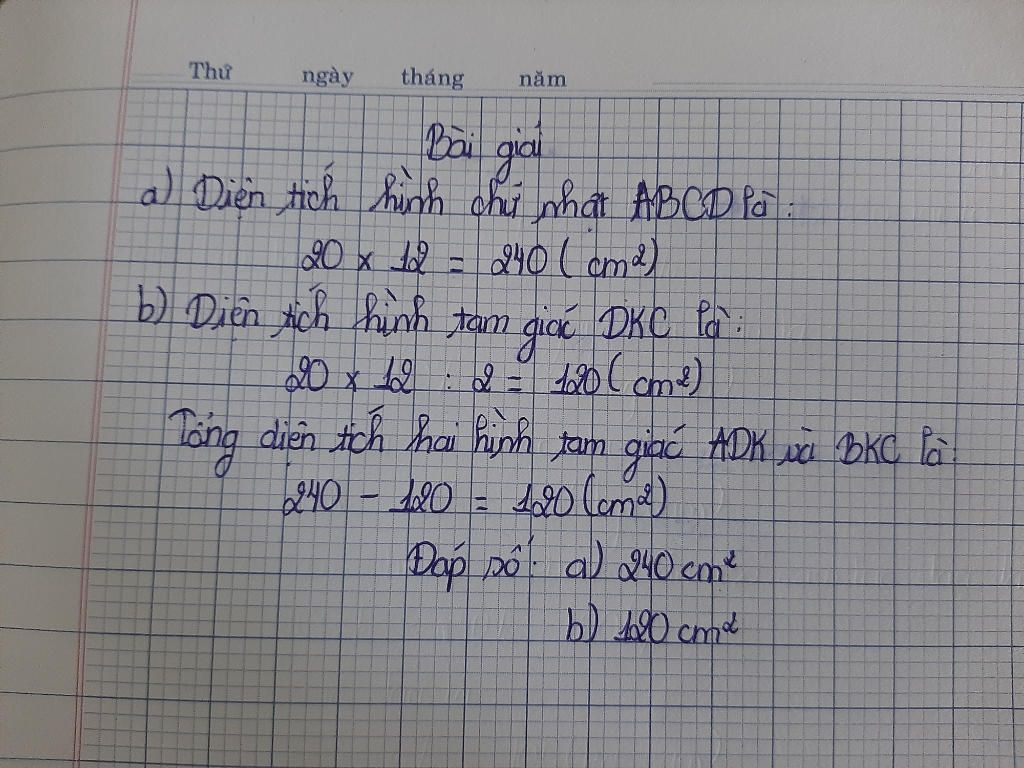 Thứ ngày tháng năm
Bài giải
a) Diện tích hình chữ nhật ABCD là:
20 x 12 = 240 ( cm²)
b) Diện tích hình tam giác DKC là:
20 x 12 : 2 = 120 ( cm²)
Tổng diện tích hai hình tam giác ADK và BKC là:
240 - 120 = 120 (cm²)
Đáp số: a) 240 cm²
b) 120 cm²